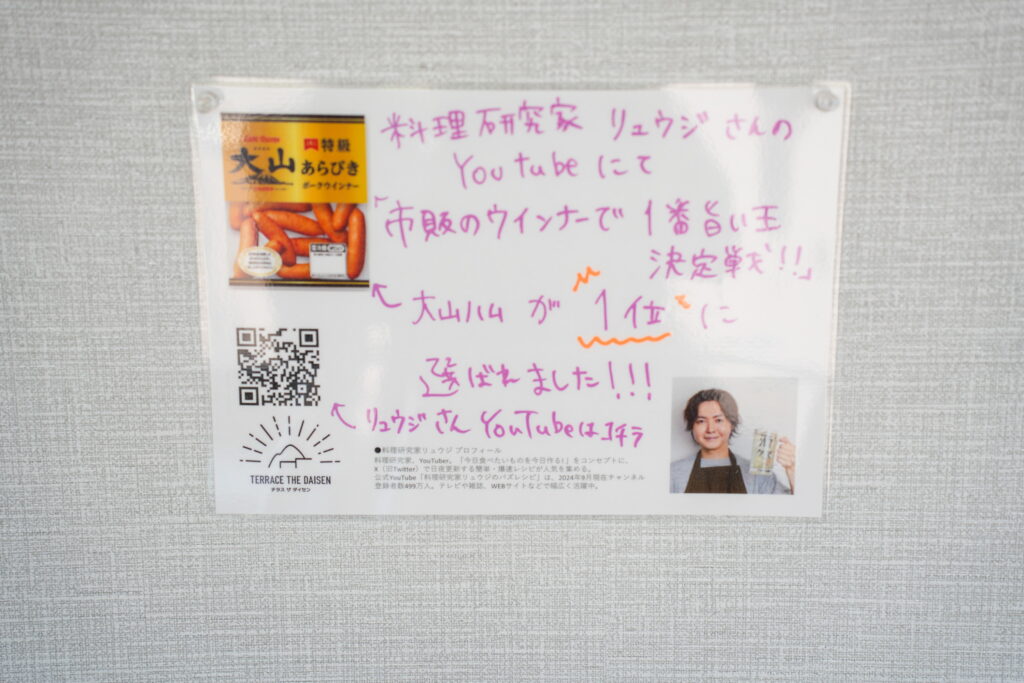 料理研究家 リュウジさんの
YouTubeにて
「市販のウインナーで 1番旨い王
決定戦!!」
大山ハムが "1位" に
選ばれました!!!
リュウジさん YouTubeはコチラ
特級
大山
あらびき
ポークウインナー
TERRACE THE DAISEN
テラス ザ ダイセン
●料理研究家リュウジ プロフィール
料理研究家、YouTuber。「今日食べたいものを今日作る!」をコンセプトに、
X(旧Twitter)で日夜更新する簡単・爆速レシピが人気を集める。
公式YouTube「料理研究家リュウジのバズレシピ」は、2024年9月現在チャンネル
登録者数499万人。テレビや雑誌、WEBサイトなどで幅広く活躍中。